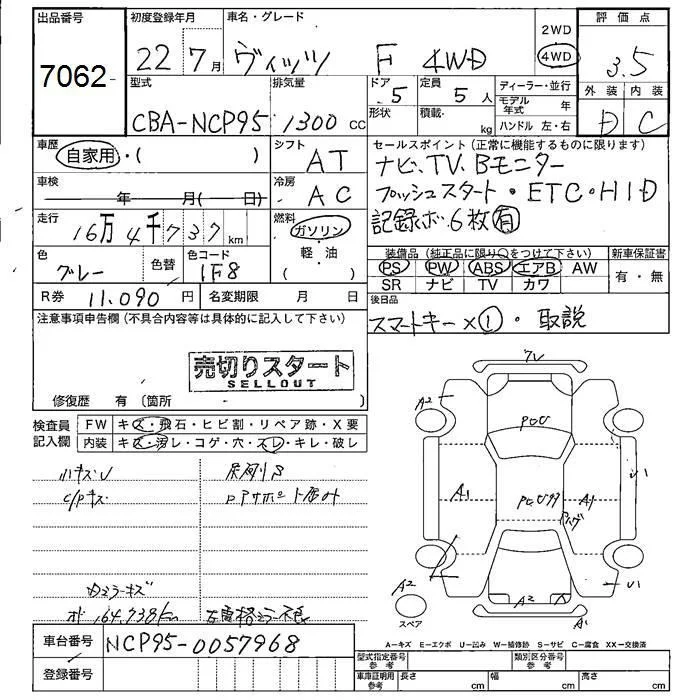 出品番号
7062
初度登録年月
22 7月
車名・グレード
ヴィッツ F 4WD
2WD
4WD
評価点
3.5
外装 内装
D C
型式
CBA-NCP95
排気量
1300 cc
ドア 5
形状
定員 5人
積載 kg
ディーラー・並行
モデル年式 年
ハンドル 左・右
車歴
自家用・( )
シフト
AT
セールスポイント (正常に機能するものに限ります)
ナビ、TV、Bモニター
プッシュスタート・ETC・HID
記録ボ 6枚 有
車検
年 月( 日)
冷房
AC
走行
16万4千737km
燃料
ガソリン
軽・油
( )
色
グレー
色替
色コード
1F8
装備品 (純正品に限り○をつけて下さい)
PS PW ABS エアB AW
SR ナビ TV カワ
新車保証書
有・無
R券 11,090円
名変期限 月 日
後日品
スマートキー×①・取説
注意事項申告欄 (不具合内容等は具体的に記入して下さい)
売切りスタート
SELLOUT
修復歴 有 (箇所 )
検査員記入欄
FW キズ・飛石・ヒビ割・リペア跡・X要
内装 キズ・汚レ・コゲ・穴・スレ・キレ・破レ
ハキズU
C/Pキズ
ミラーキズ
164,738km
A2
A1
A1
A2
A2
A1
スペア
A-キズ E-エクボ U-凹み W-補修跡 S-サビ C-腐食 XX-交換済
車台番号
NCP95-0057968
登録番号
型式指定番号 参考
類別区分番号 参考
車庫証明用 参考
長さ cm 幅 cm 高さ cm